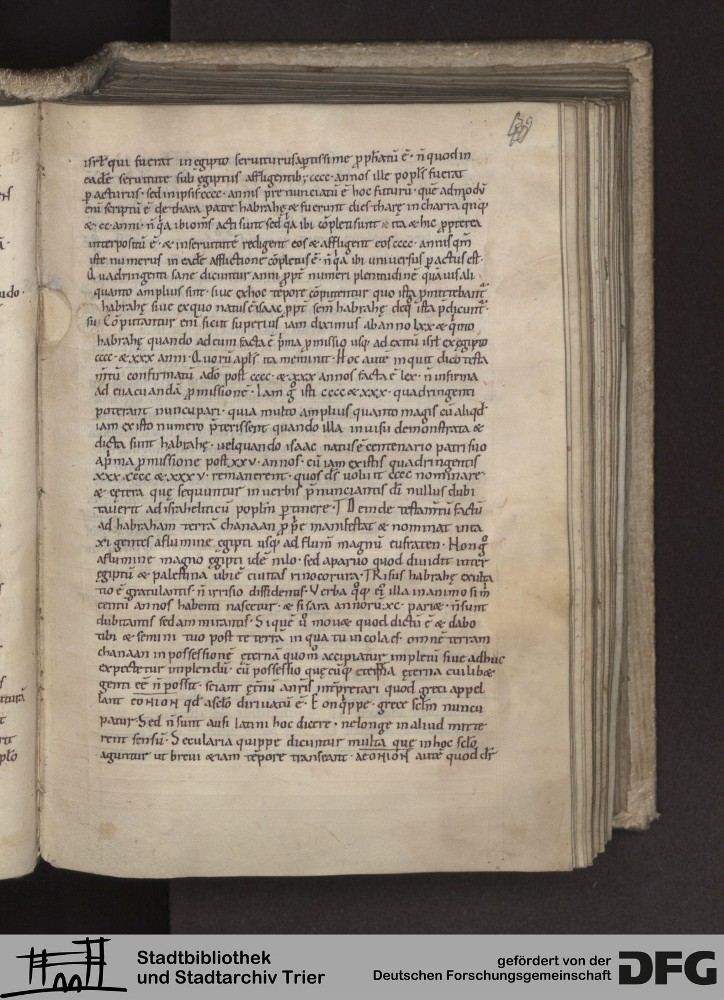 isrł qui fuerat in egipto seruiturus aptissime ꝓphatū ē · n̄ quod in
eadē seruitute sub egiptiis affligentib; cccc · annos ille popłs fuerat
ꝑacturus · sed in ipsis cccc · annis pre nunciatū ē hoc futurū · quē admodū
enī scriptū ē de thara patre habrahę & fuerunt dies tharę in charra
& cc · anni · n̄ qa ibi oms̄ acti sunt sed qa ibi cōpleti sunt ita & hic ꝓpterea
interpositū ē · & in seruitutē redigent eos & affligent eos cccc · annis qm̄
iste numerus in eadē afflictione cōpletus ē · n̄ qa ibi uniuersus ꝑactus est ·
Quadringenti sane dicuntur anni ꝓpt numeri plenitudinē quāuis ali
quanto amplius sint · siue ex hoc tēpore cōputentur quo ista
habrahę siue ex quo natus ē isaac ꝓpt sem̄ habrahę de q ista
Cōputantur enī sicut superius iam diximus ab anno lxx & qnto
habrahę quando ad eum facta ē pma ꝓmissio usq ad exitū isrł ex egipto
cccc · & xxx anni · Quorū apłs ita meminit · Hoc autē inquit dico testa
mtū confirmatū a dō post cccc · & xxx annos facta ē lex · n̄ infirma
ad euacuandā ꝓmissionē · Iam g isti cccc & xxx · quadringenti
poterant nuncupari · quia multo amplius quanto magis cū aliqd
iam ex isto numero pterissent quando illa in uisu demonstrata &
dicta sunt habrahę · uel quando isaac natus ē centenario patri suo
a pma ꝓmissione post xxv · annos · cū iam ex istis quadringentis
xxx · cccc & xxxv · remanerent · quos ds̄ uoluit cccc nominare
& cętera quę sequuntur in uerbis pnunciantis dī nullus dubi
tauerit ad israheliticū popłm ꝑtinere · Deinde testamtū factū
ad habraham terrā chanaan ꝓpe manifestat & nominat in ea
xi gentes a flumine egipti usq ad flum̄ magnū eufraten · Non g
a flumine magno ęgipti idē nilo · sed a paruo quod diuidit inter
egiptū & palestina ubi ē ciuitas rinocorura · Risus habrahę exulta
tio ē gratulantis · n̄ irrisio diffidentis · Verba qq eī illa in animo si m̄
centū annos habenti nascetur · & si sara annorū · xc · pariæ · n̄ sunt
dubitantis sed ammirantis · Si quē u mouæ quod dictū ē & dabo
tibi & semini tuo post te terrā in qua tu incola es · omnē terram
chanaan in possessionē ęternā quom accipiatur impletū siue adhuc
expectetur implendū · cū possessio quęcūq terrena ęterna cuilibæ
genti eē n̄ possit · sciant ętnū a nris̄ intpretari quod greci appel
lant EONION qd a sclo deriuatū ē · Eon qppe · grece sclm̄ nuncu
patur · Sed n̄ sunt ausi latini hoc dicere · ne longe in aliud mitte
rent sensū · Secularia quippe dicuntur multa quę in hoc sclo
aguntur ut breui etiam tēpore transeant · AEONION autē quod dr̄
Stadtbibliothek
und Stadtarchiv Trier
gefördert von der
Deutschen Forschungsgemeinschaft
DFG